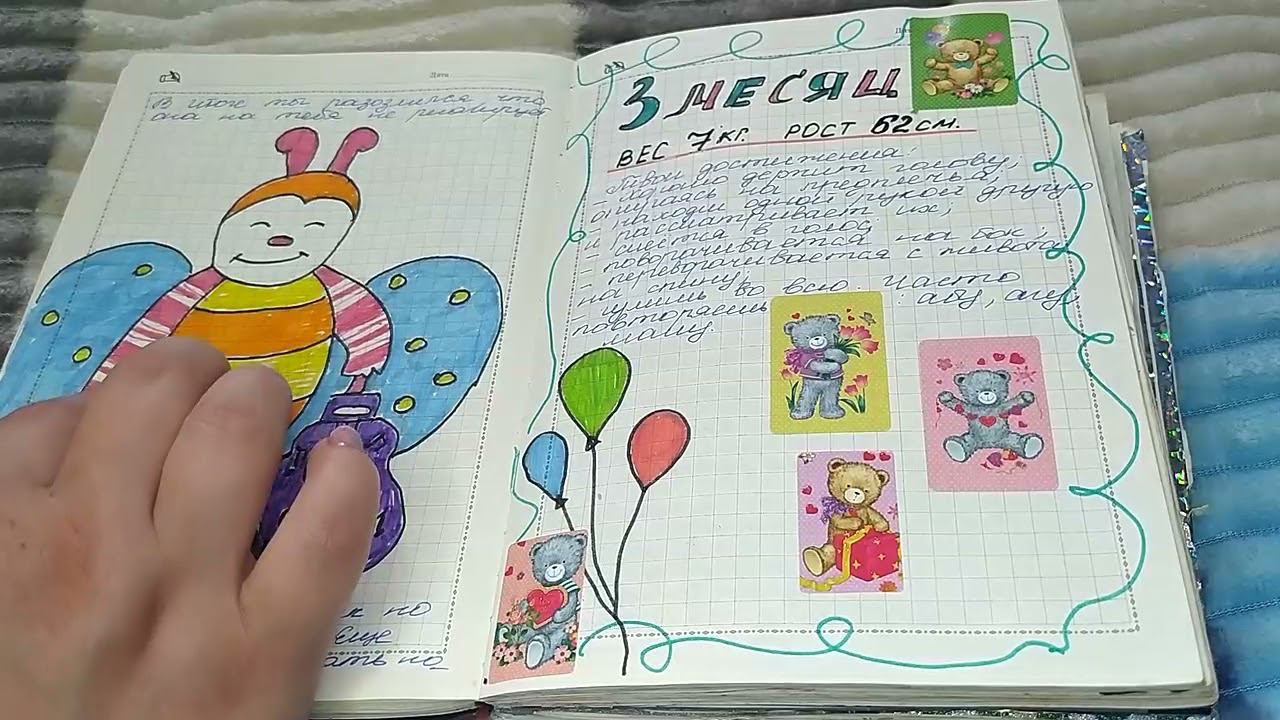 Дата
В итоге ты разозлился что
она на тебя не реагирует
но
еще
ать по
3 МЕСЯЦ
ВЕС 7 КГ. РОСТ 62 СМ.
Твои достижения:
- держит голову,
опираясь на предплечья
- находит одной рукой другую
и рассматривает их;
- смеется в голос;
- поворачивается на бок;
- переворачивается с живота
на спину;
- гулишь во всю. Часто
повторяешь: абу, агу,
маму.